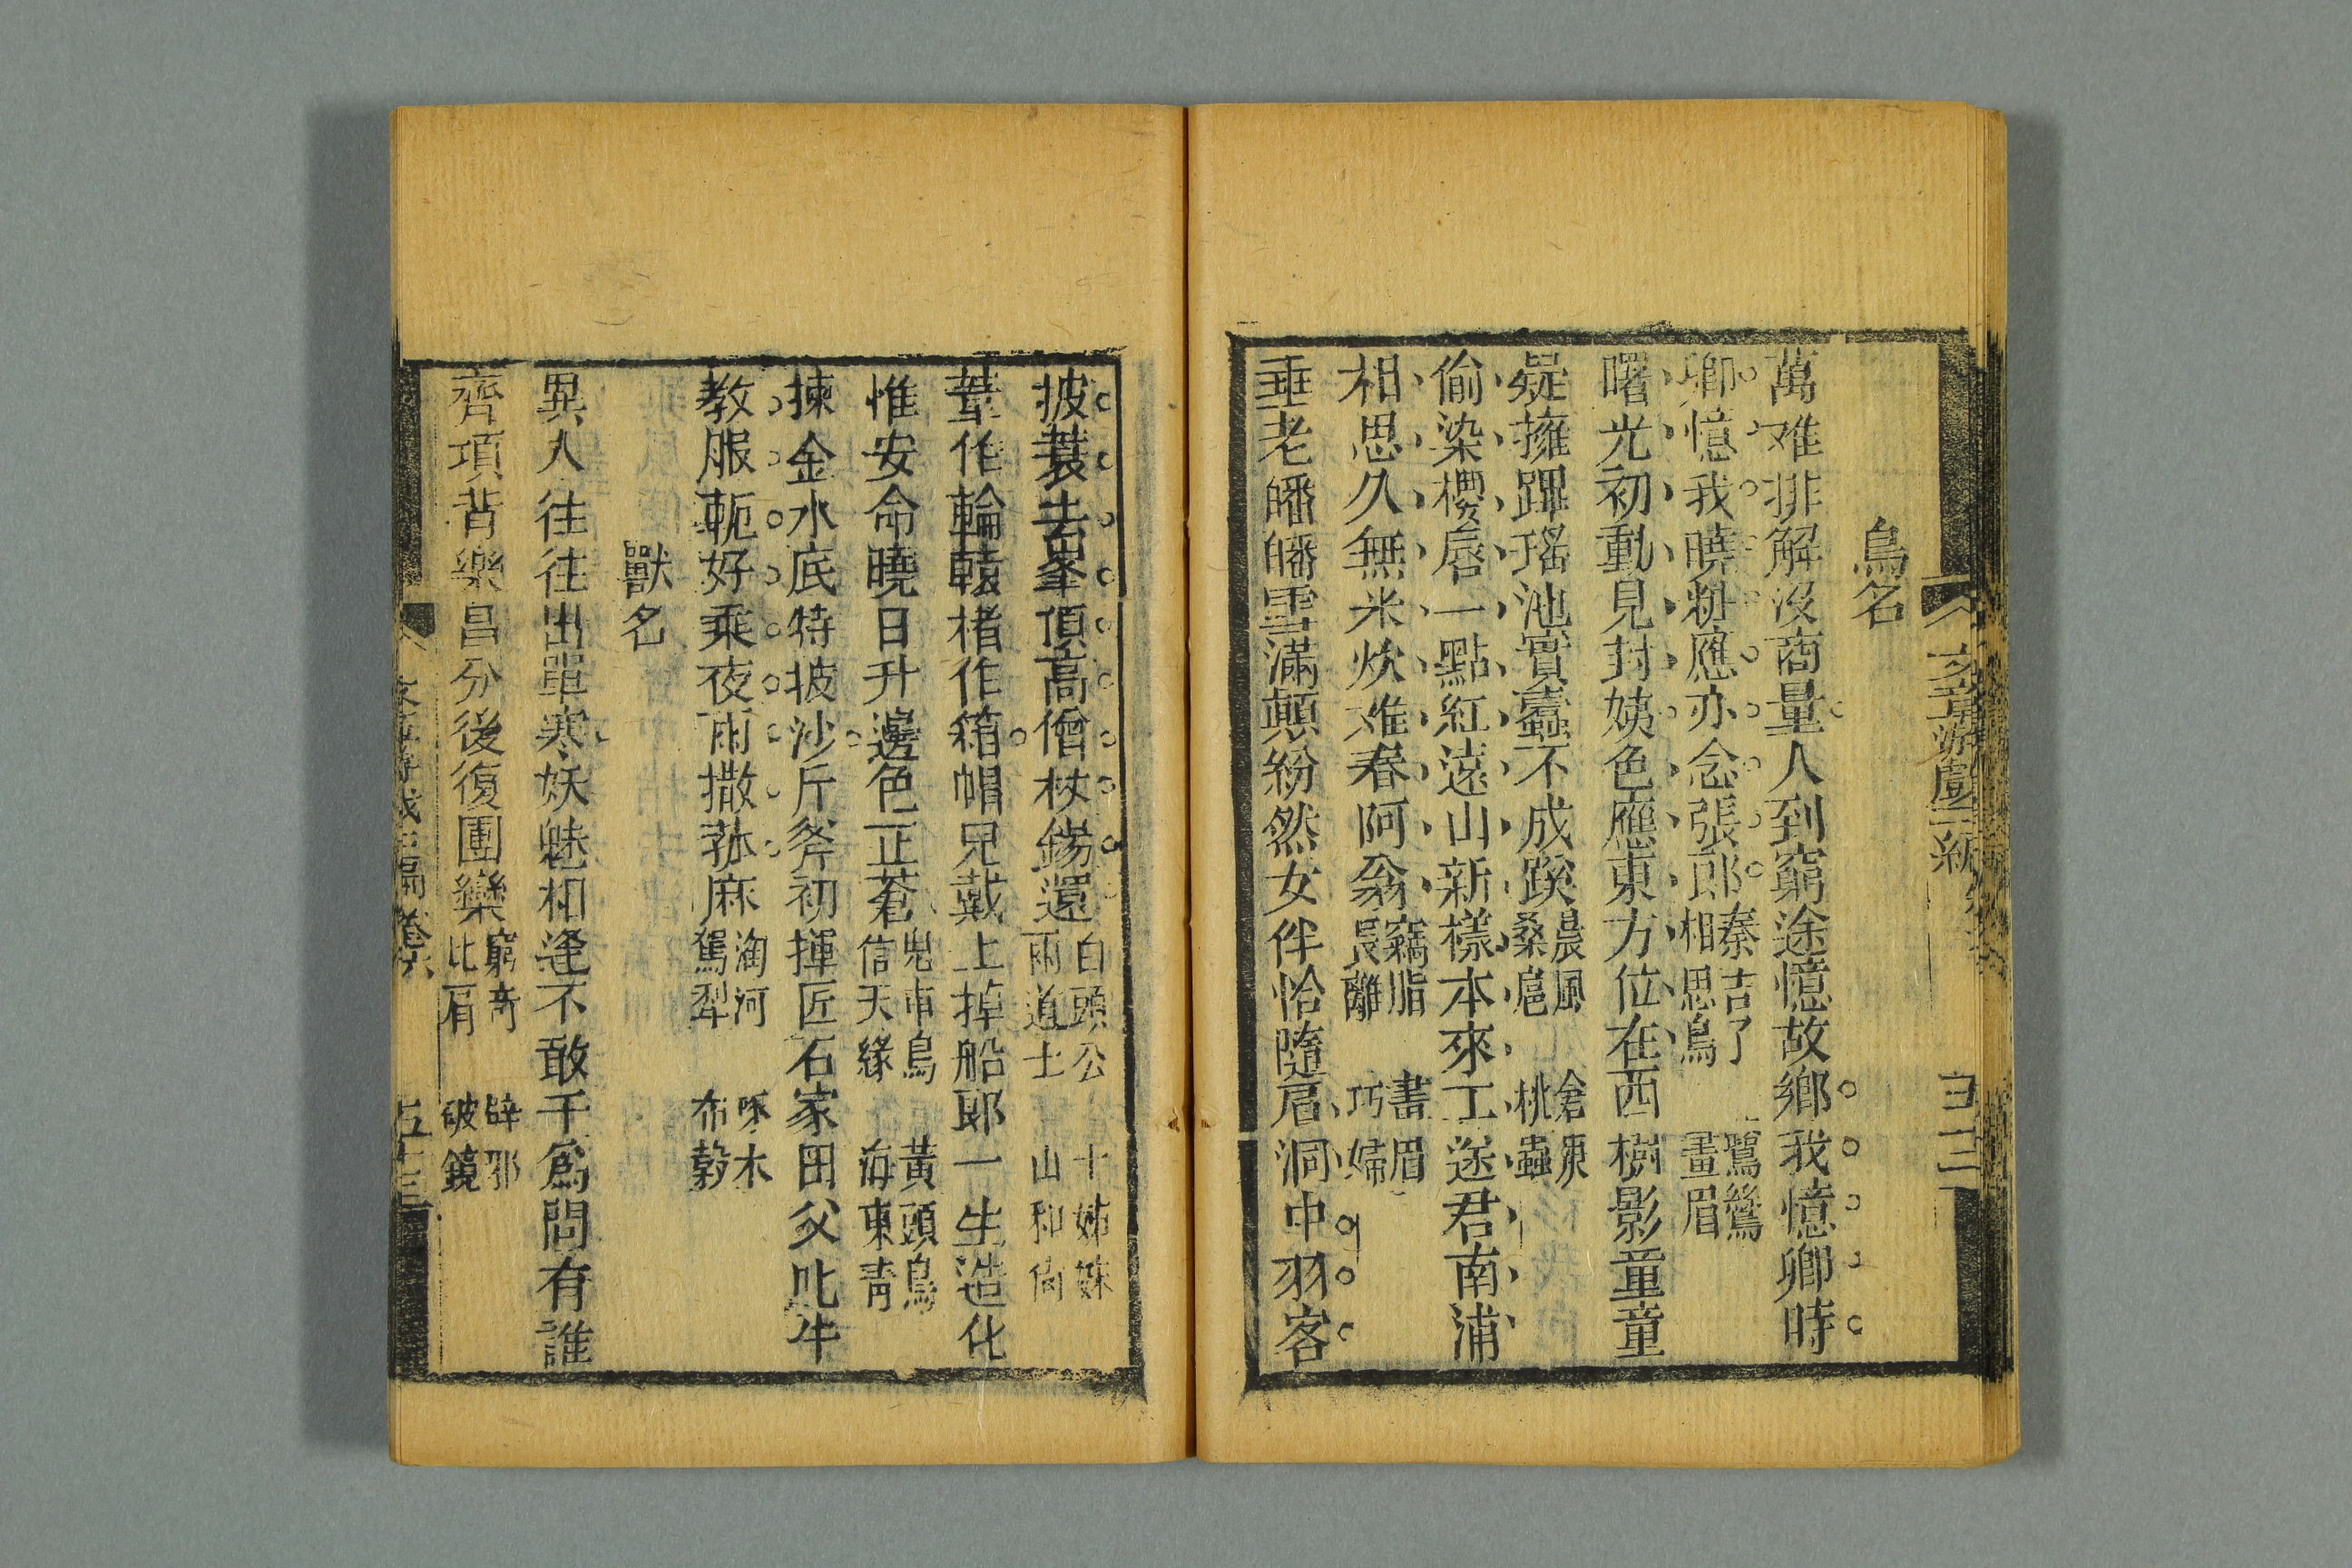 鳥名
萬难排解沒商量人到窮途憶故鄉我憶卿時
卿憶我曉粉應亦念張郎秦吉了相思鳥鷺鷥畫眉
曙光初動見封姨色應東方位在西樹影童童
疑擁蹕瑤池實蠹不成蹊晨風桑扈倉庚桃蟲
偷染櫻唇一點紅遠山新樣本來工送君南浦
相思久無米炊难春阿翁竊脂長離畫眉巧婦
垂老皤皤雪滿顛紛然女伴恰隨肩洞中羽客
披蓑去峯頂高僧杖錫還白頭公雨道士十姊妹山和尚
葦作輪轅楮作箱帽兒戴上掉船郎一生造化
惟安命曉日升邊色正蒼鬼車鳥信天緣黃頭鳥海東青
揀金水底特披沙斤斧初揮匠石家田父叱牛
教服軛好乘夜雨撒菰麻淘河駕犁啄木布穀
獸名
異人往往出單寒妖魅相逢不敢干為問有誰
齊項背樂昌分後復團欒窮奇比肩辟邪破鏡
五十三